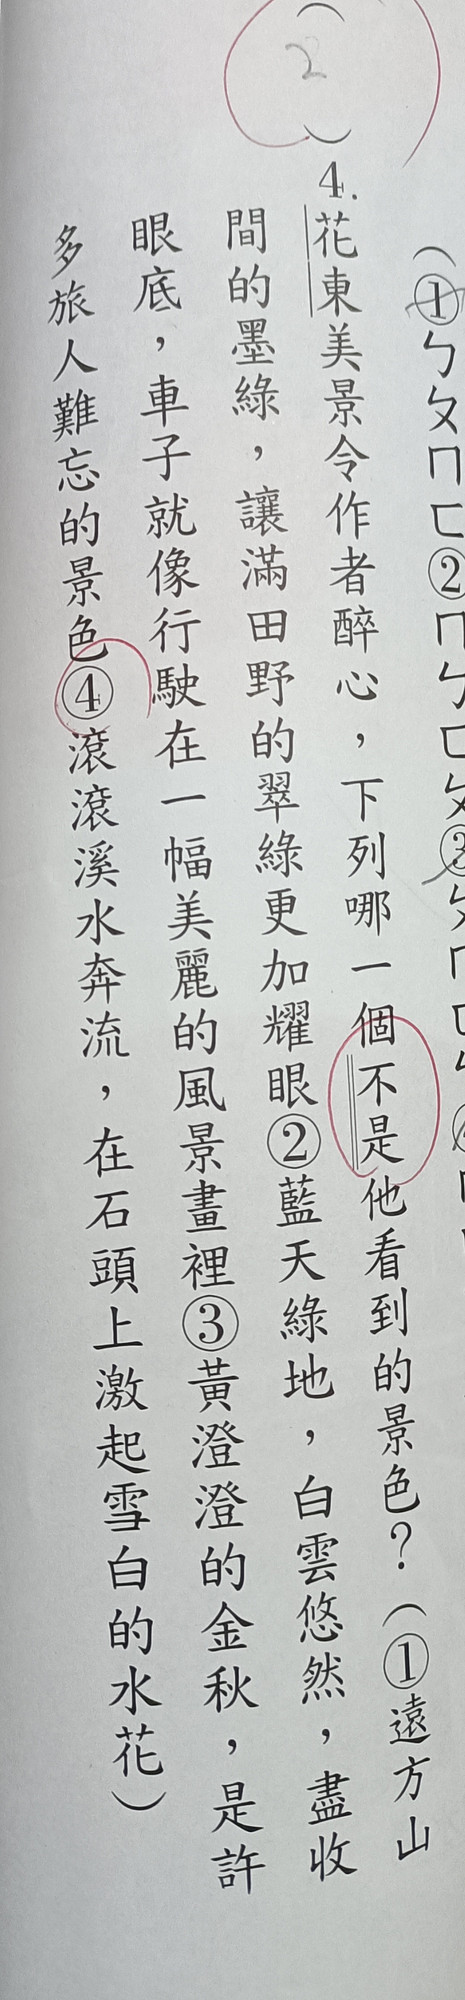 (①ㄅㄆㄇㄈ②ㄇㄅㄈㄆ③ㄆㄇㄈㄅ
(2)4.花東美景令作者醉心，下列哪一個不是他看到的景色？(①遠方山
間的墨綠，讓滿田野的翠綠更加耀眼②藍天綠地，白雲悠然，盡收
眼底，車子就像行駛在一幅美麗的風景畫裡③黃澄澄的金秋，是許
多旅人難忘的景色④滾滾溪水奔流，在石頭上激起雪白的水花)